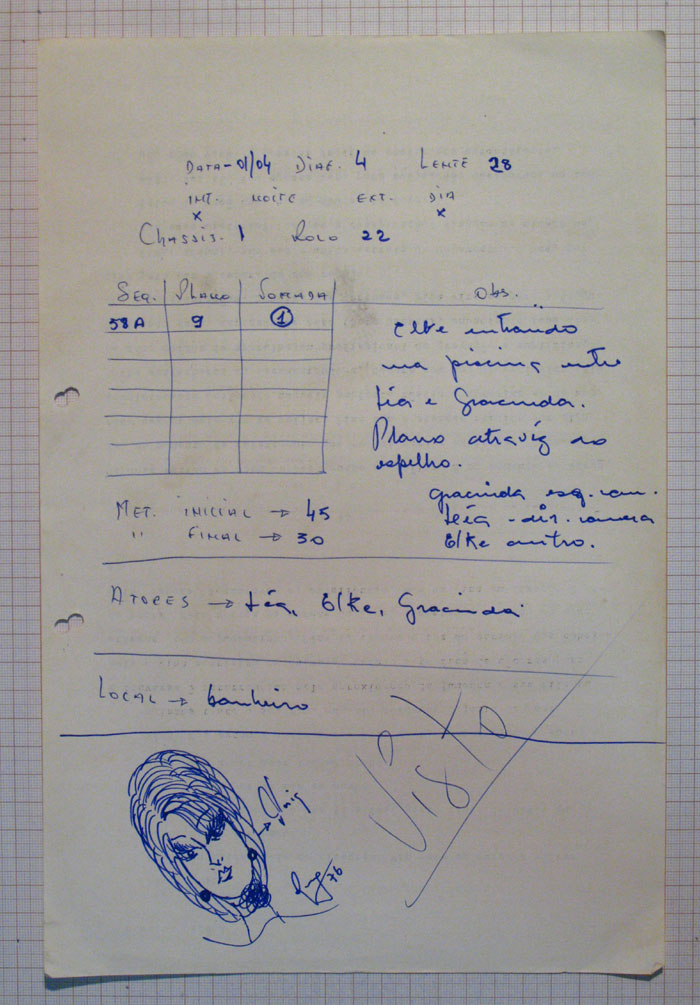 DATA - 01/04 DIAF. 4 LENTE 28
INT. NOITE EXT. DIA
x x
CHASSIS. 1 ROLO 22
SEQ. PLANO TOMADA OBS.
58A 9 1
Elke entrando
na piscina entre
téa e Gracinda.
Plano atravéz do
espelho.
gracinda esq. cam.
téa - dir. camera
Elke centro.
MET. INICIAL → 45
" FINAL → 30
ATORES → téa, Elke, Gracinda
LOCAL → banheiro
VISTO
76